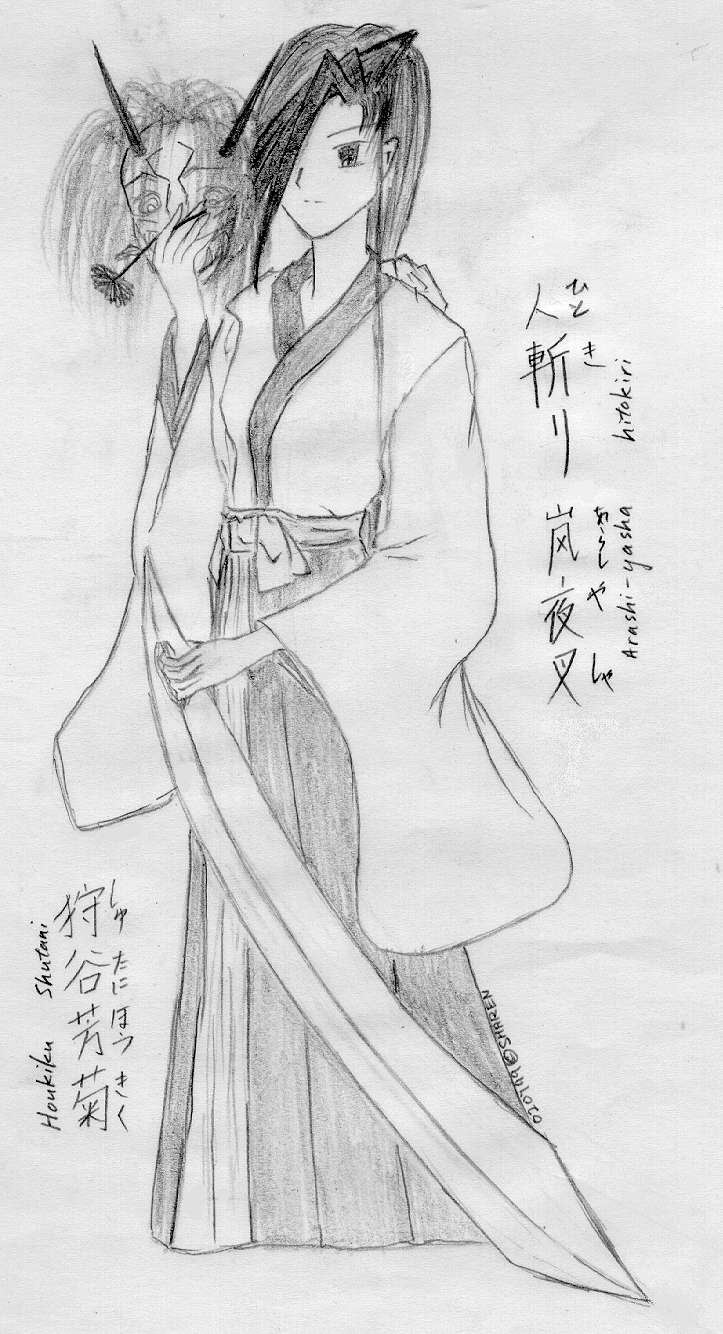 人斬り
ひとき
hitokiri
嵐夜叉
あらしやしゃ
Arashi-yasha
狩谷芳菊
しゅたにほうきく
Houkiku Shutani
020799©SHAREN